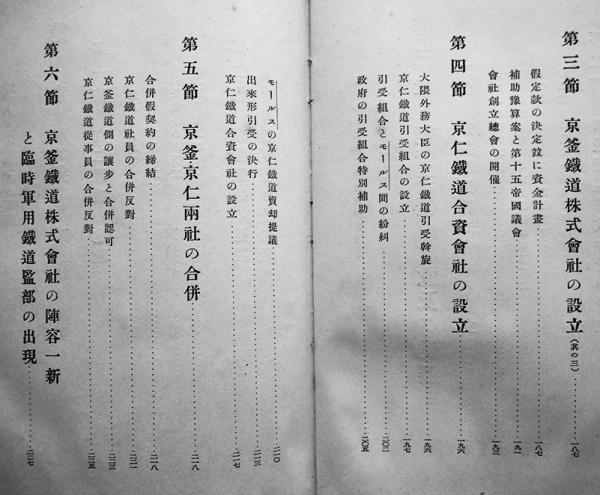 第三節 京釜鐵道株式會社の設立(其の三)…一八七
假定款の決定竝に資金計畫…一八七
補助豫算案と第十五帝國議會…一九一
會社創立總會の開催…一九三
第四節 京仁鐵道合資會社の設立…一九六
大隈外務大臣の京仁鐵道引受斡旋…一九六
京仁鐵道引受組合の設立…一九七
引受組合とモールス間の紛糾…二〇一
政府の引受組合特別補助…二〇五
モールスの京仁鐵道賣却提議…二一〇
出來形引受の決行…二一三
京仁鐵道合資會社の設立…二一七
第五節 京釜・京仁兩社の合併…二一八
合併假契約の締結…二一八
京仁鐵道社員の合併反對…二二一
京釜鐵道側の讓步と合併認可…二二三
京仁鐵道從事員の合併反對…二二五
第六節 京釜鐵道株式會社の陣容一新
と臨時軍用鐵道監部の出現…二二七